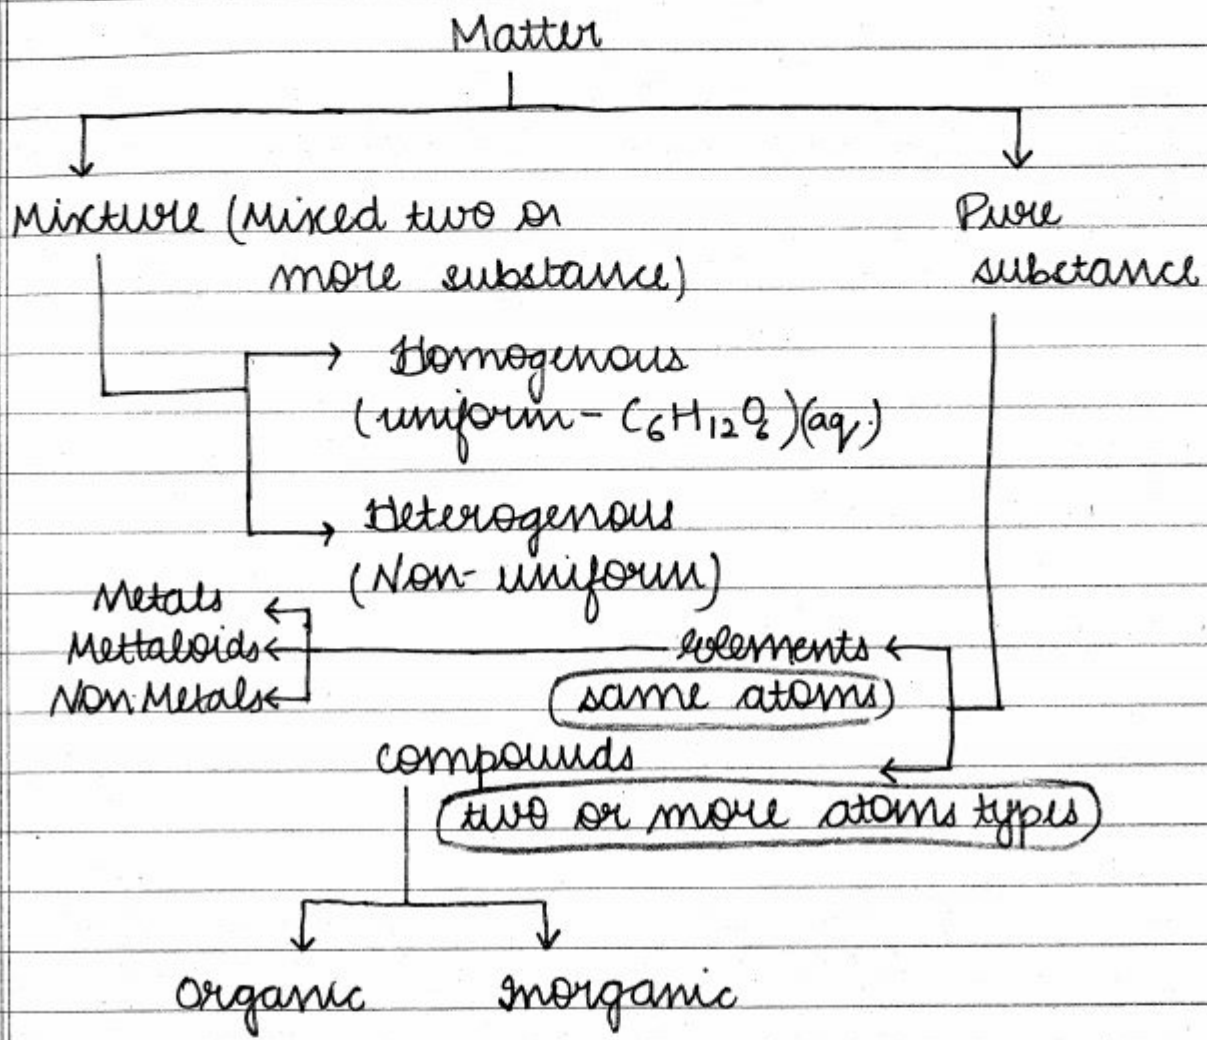 Matter
Mixture (Mixed two or
more substance)
Pure
substance
Homogenous
(uniform - C₆H₁₂O₆)(aq.)
Heterogenous
(Non- uniform)
Metals
Mettaloids
Non Metals
elements
same atoms
compounds
two or more atoms types
Organic
Inorganic